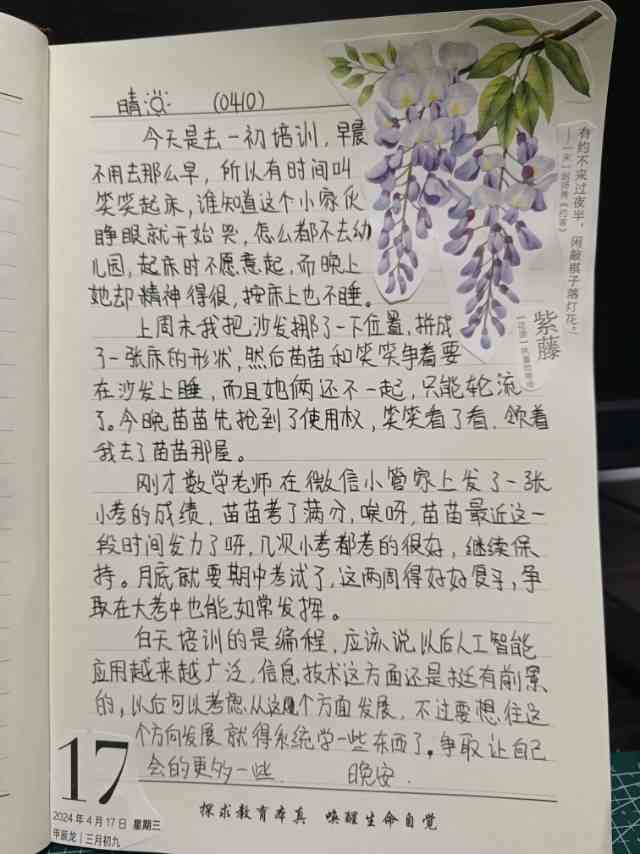 晴 (0410)
今天是去一初培训，早晨
不用去那么早，所以有时间叫
笑笑起床，谁知道这个小家伙
睁眼就开始哭，怎么都不去幼
儿园，起床时不愿意起，而晚上
她却精神得很，按床上也不睡。
上周末我把沙发挪了一下位置，拼成
了一张床的形状，然后苗苗和笑笑争着要
在沙发上睡，而且她俩还不一起，只能轮流
了。今晚苗苗先抢到了使用权，笑笑看了看，领着
我去了苗苗那屋。
刚才数学老师在微信小管家上发了一张
小考的成绩，苗苗考了满分，唉呀，苗苗最近这一
段时间发力了呀，几次小考都考的很好，继续保
持。月底就要期中考试了，这两周得好好复习，争
取在大考中也能如常发挥。
白天培训的是编程，应该说以后人工智能
应用越来越广泛，信息技术这方面还是挺有前景
的，以后可以考虑从这几个方面发展，不过要想往这
个方向发展就得系统学一些东西了。争取让自己
会的更多一些. 晚安.
有约不来过夜半，闲敲棋子落灯花。
——［宋］赵师秀《约客》
紫藤
17
2024年4月17日 星期三
甲辰龙｜三月初九
探求教育本真 唤醒生命自觉